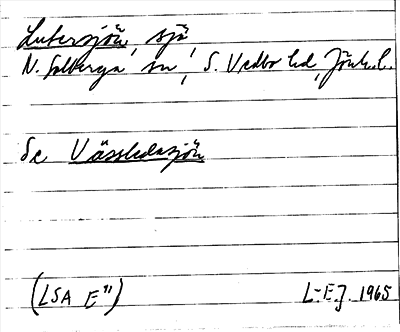 Lutersjön, sjö
N. Solberga sn, S. Vedbo hd, Jönk. l.
Se Vässledasjön
(LSA E")
L-E.J. 1965